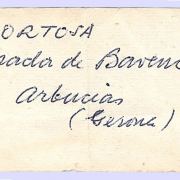 ORTOSA
nada de Baven
Arbucias
(Gerona)